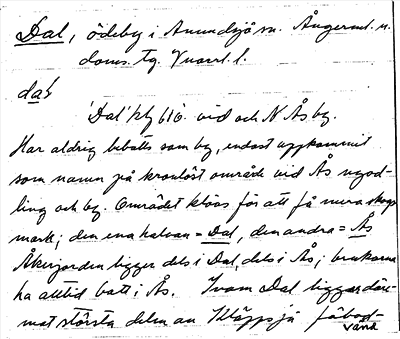 Dal, ödeby i Anundsjö sn. Ångerml. n.
doms. tg.
dal
'Dal' vid och N Ås by.
Har aldrig bebotts som by, endast uppkommit
som namn på kronlöst område vid Ås nyod-
ling och by. Området klövs för att få mera skogs
mark; den ena halvan = Dal, den andra = Ås
Åkerjorden ligger dels i Dal, dels i Ås; brukarna
ha alltid bott i Ås. Inom Dal ligger däre-
mot största delen av fäbod-
vall